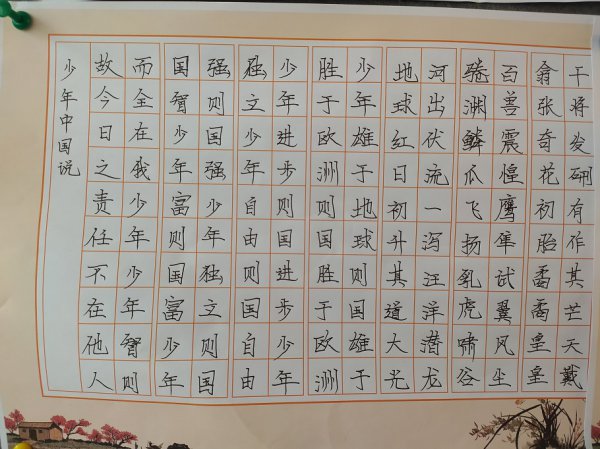 少年中国说
故今日之责任不在他人
而全在我少年少年智则
国智少年富则国富少年
强则国强少年独立则国
独立少年自由则国自由
少年进步则国进步少年
胜于欧洲则国胜于欧洲
少年雄于地球则国雄于
地球红日初升其道大光
河出伏流一泻汪洋潜龙
腾渊鳞爪飞扬乳虎啸谷
百兽震惶鹰隼试翼风尘
翕张奇花初胎矞矞皇皇
干将发硎有作其芒天戴